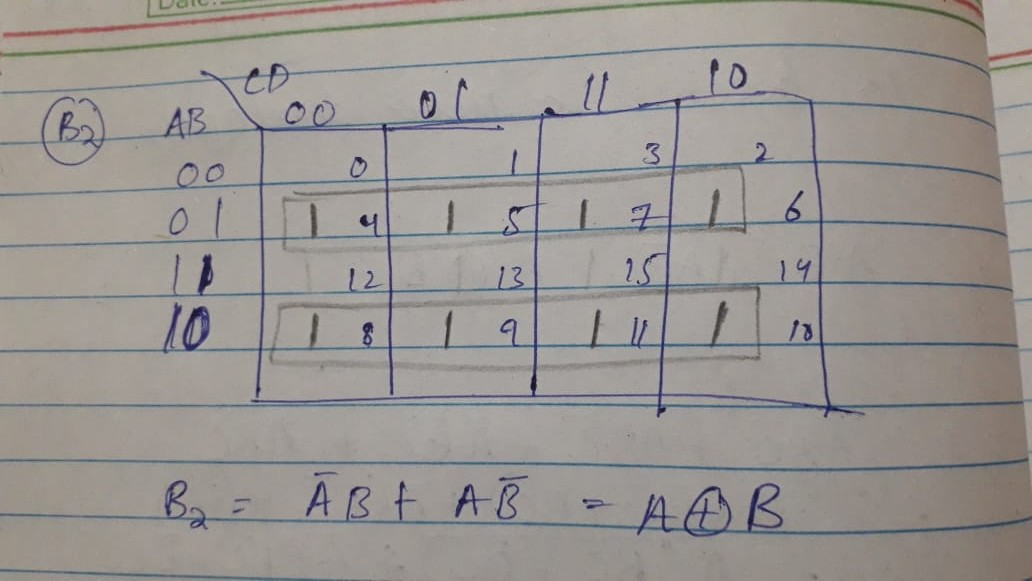 Date:
CD
00 01 11 10
B2 AB
00 0 1 3 2
01 1 4 1 5 1 7 1 6
11 12 13 15 14
10 1 8 1 9 1 11 1 10
B₂ = A̅B + AB̅ = A⊕B